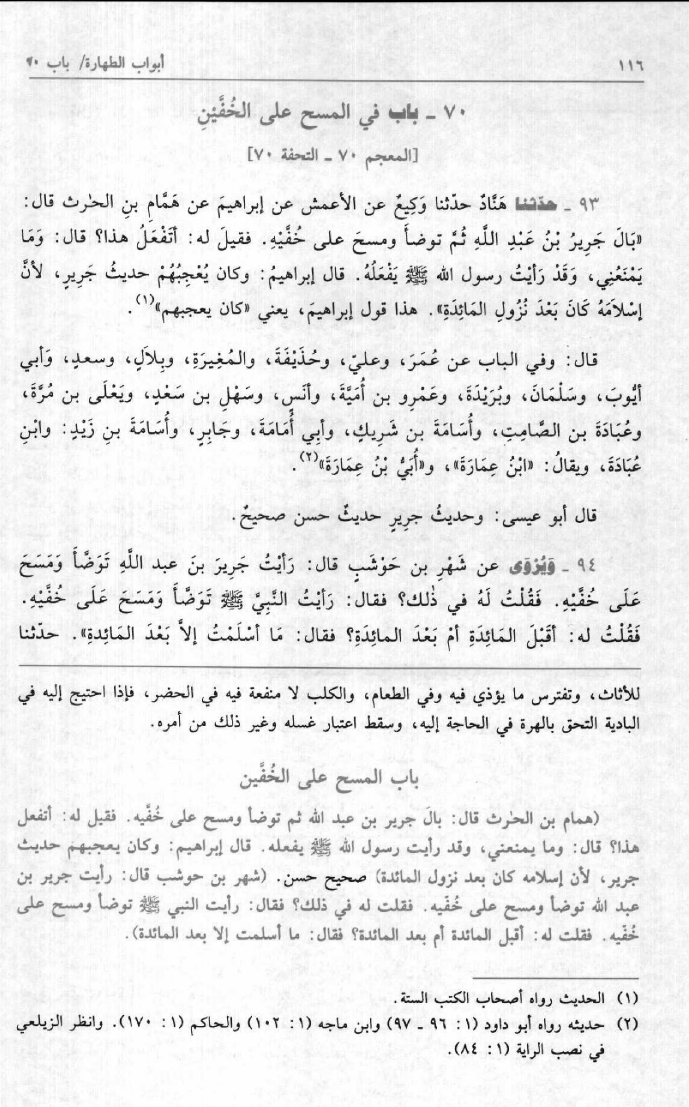 ١١٦
أبواب الطهارة/ باب ٧٠
٧٠ ـ باب في المسح على الخُفَّيْنِ
[المعجم ٧٠ ـ التحفة ٧٠]
٩٣ ـ حدّثنا هَنَّادٌ حدّثنا وَكِيعٌ عن الأعمش عن إبراهيمَ عن هَمَّامِ بنِ الحٰرث قال:
«بَالَ جَرِيرُ بْنُ عَبْدِ اللَّهِ ثُمَّ توضأَ ومسحَ على خُفَّيْهِ. فقيلَ له: أتَفْعَلُ هذا؟ قال: وَمَا
يَمْنَعُنِي، وَقَدْ رَأَيْتُ رسول الله ﷺ يَفْعَلُهُ. قال إبراهيمُ: وكان يُعْجِبُهُمْ حديثُ جَرِيرٍ، لأنَّ
إسْلاَمَهُ كَانَ بَعْدَ نُزُولِ المَائِدَةِ». هذا قول إبراهيمَ، يعني «كان يعجبهم»(١).
قال: وفي الباب عن عُمَرَ، وعليّ، وحُذَيْفَةَ، والمُغِيرَةِ، وبِلاَلٍ، وسعدٍ، وَأبي
أيُّوبَ، وسَلْمَانَ، وبُرَيْدَةَ، وعَمْرِو بن أُمَيَّةَ، وأنَسٍ، وسَهْلِ بن سَعْدٍ، ويَعْلَى بن مُرَّةَ،
وعُبَادَةَ بن الصَّامِتِ، وأُسَامَةَ بن شَرِيكٍ، وأبِي أُمَامَةَ، وجَابِرٍ، وأُسَامَةَ بنِ زَيْدٍ: وابْنِ
عُبَادَةَ، ويقالُ: «ابْنُ عِمَارَةَ»، و«أُبَيُّ بْنُ عِمَارَةَ»(٢).
قال أبو عيسى: وحديثُ جرِيرٍ حديثٌ حسن صحيحٌ.
٩٤ ـ وَيُرْوَى عن شَهْرِ بن حَوْشَبٍ قال: رَأيْتُ جَرِيرَ بنَ عبد اللَّهِ تَوَضَّأَ وَمَسَحَ
عَلَى خُفَّيْهِ. فَقُلْتُ لَهُ في ذٰلك؟ فقال: رَأَيْتُ النَّبِيَّ ﷺ تَوَضَّأَ وَمَسَحَ عَلَى خُفَّيْهِ.
فَقُلْتُ له: أقَبْلَ المَائِدَةِ أمْ بَعْدَ المائِدَةِ؟ فقال: مَا أسْلَمْتُ إلاَّ بَعْدَ المَائِدةِ». حدّثنا
للأثاث، وتفترس ما يؤذي فيه وفي الطعام، والكلب لا منفعة فيه في الحضر، فإذا احتيج إليه في
البادية التحق بالهرة في الحاجة إليه، وسقط اعتبار غسله وغير ذلك من أمره.
باب المسح على الخُفَّين
(همام بن الحٰرث قال: بالَ جرير بن عبد الله ثم توضأ ومسح على خُفَّيه. فقيل له: أتفعل
هذا؟ قال: وما يمنعني، وقد رأيت رسول الله ﷺ يفعله. قال إبراهيم: وكان يعجبهم حديث
جرير، لأن إسلامه كان بعد نزول المائدة) صحيح حسن. (شهر بن حوشب قال: رأيت جرير بن
عبد الله توضأ ومسح على خُفَّيه. فقلت له في ذلك؟ فقال: رأيت النبي ﷺ توضأ ومسح على
خُفّيه. فقلت له: أقبل المائدة أم بعد المائدة؟ فقال: ما أسلمت إلا بعد المائدة).
(١) الحديث رواه أصحاب الكتب الستة.
(٢) حديثه رواه أبو داود (١: ٩٦ ـ ٩٧) وابن ماجه (١: ١٠٢) والحاكم (١: ١٧٠). وانظر الزيلعي
في نصب الراية (١: ٨٤).